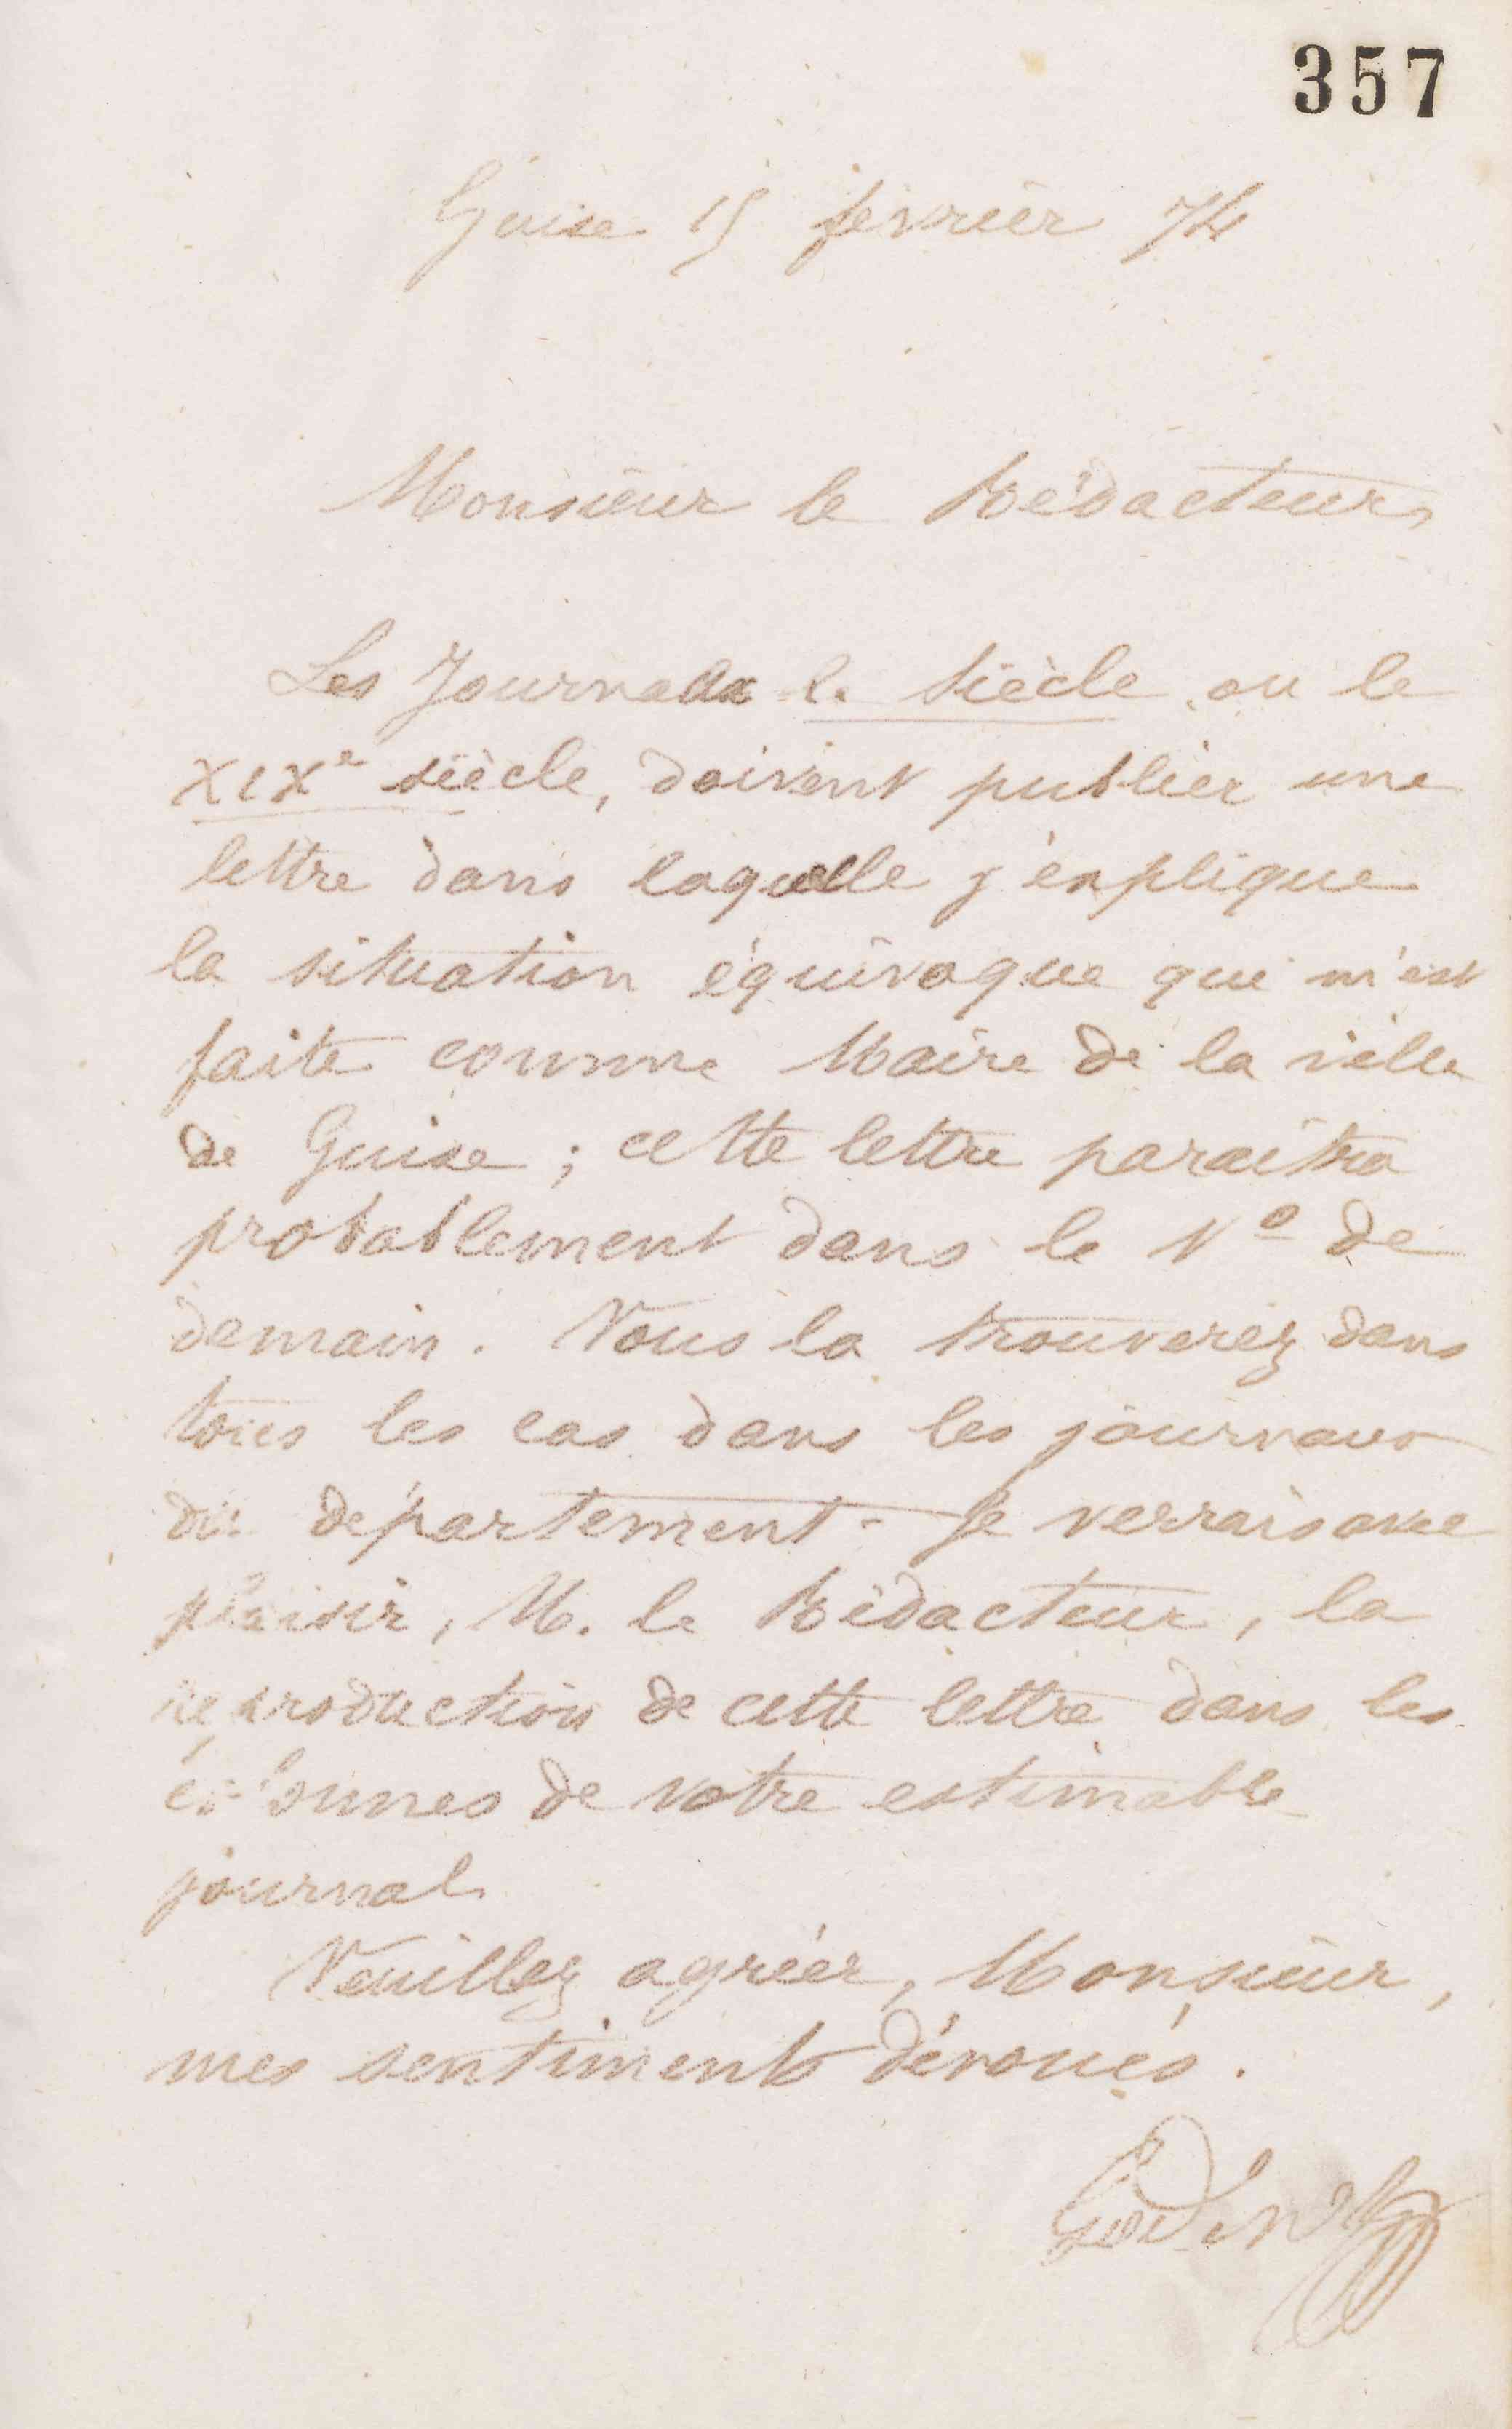 357
Guise 15 février 74
Monsieur le Rédacteur,
Les Journaux le Siècle ou le
XIXe siècle, doivent publier une
lettre dans laquelle j'explique
la situation équivoque qui m'est
faite comme Maire de la ville
de Guise ; cette lettre paraîtra
probablement dans le No de
demain. Vous la trouverez dans
tous les cas dans les journaux
du département. Je verrais avec
plaisir, M. le Rédacteur, la
reproduction de cette lettre dans les
colonnes de votre estimable
journal
Veuillez agréer, Monsieur,
mes sentiments dévoués.
Godin